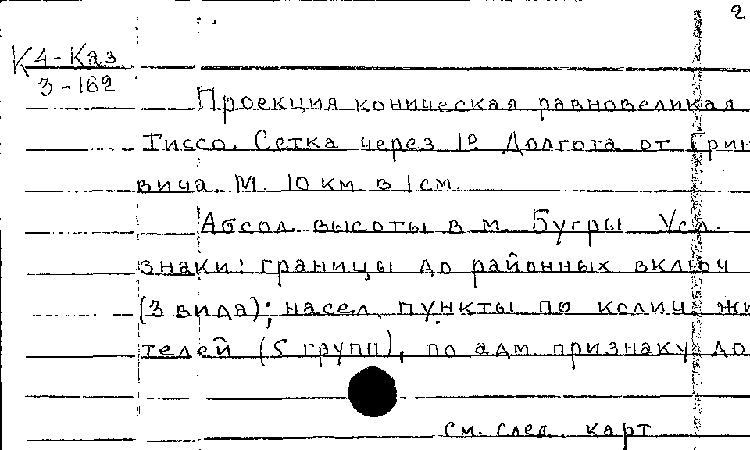 2
К 4-Каз
3-162
Проекция коническая равновеликая
Тиссо. Сетка через 1° Долгота от Грин
вича. М. 10 км в 1 см.
Абсол. высоты в м. Бугры Усл.
знаки: границы до районных включ
(3 вида); насел. пункты по колич жи
телей (5 групп), по адм. признаку до
см. след. карт